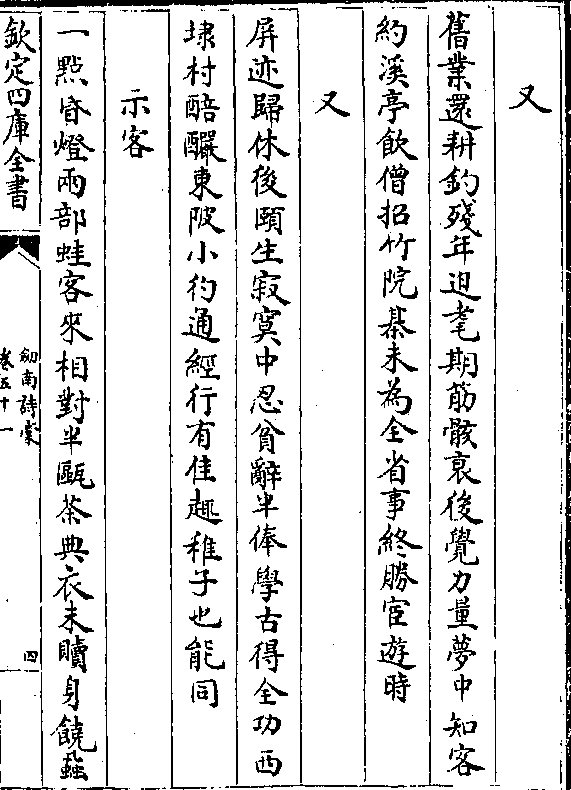 又
舊業還耕釣殘年迫耄期筋骸衰後覺力量夢中知客
約溪亭飲僧招竹院棊未為全省事終勝宦遊時
又
屏迹歸休後頤生寂寞中忍貧辭半俸學古得全功西
埭村醅釅東陂小彴通經行有佳趣稚子也能同
示客
一點昏燈兩部蛙客來相對半甌茶典衣未贖身饒蝨
欽定四庫全書
劒南詩稾
卷五十一
四